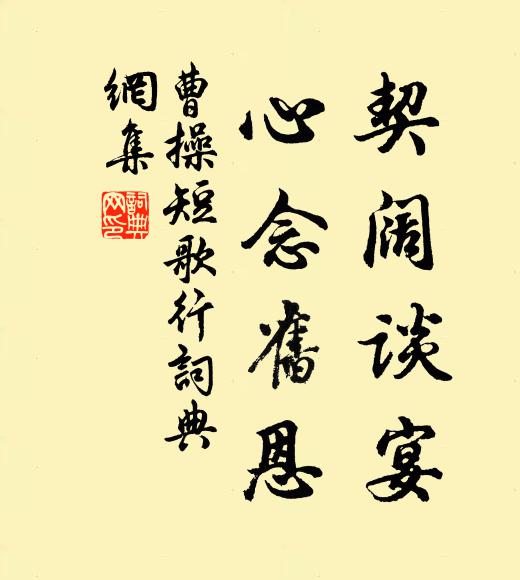 契阔谈宴
心念舊恩
曹操短歌行詞典
網集
詞典
网印